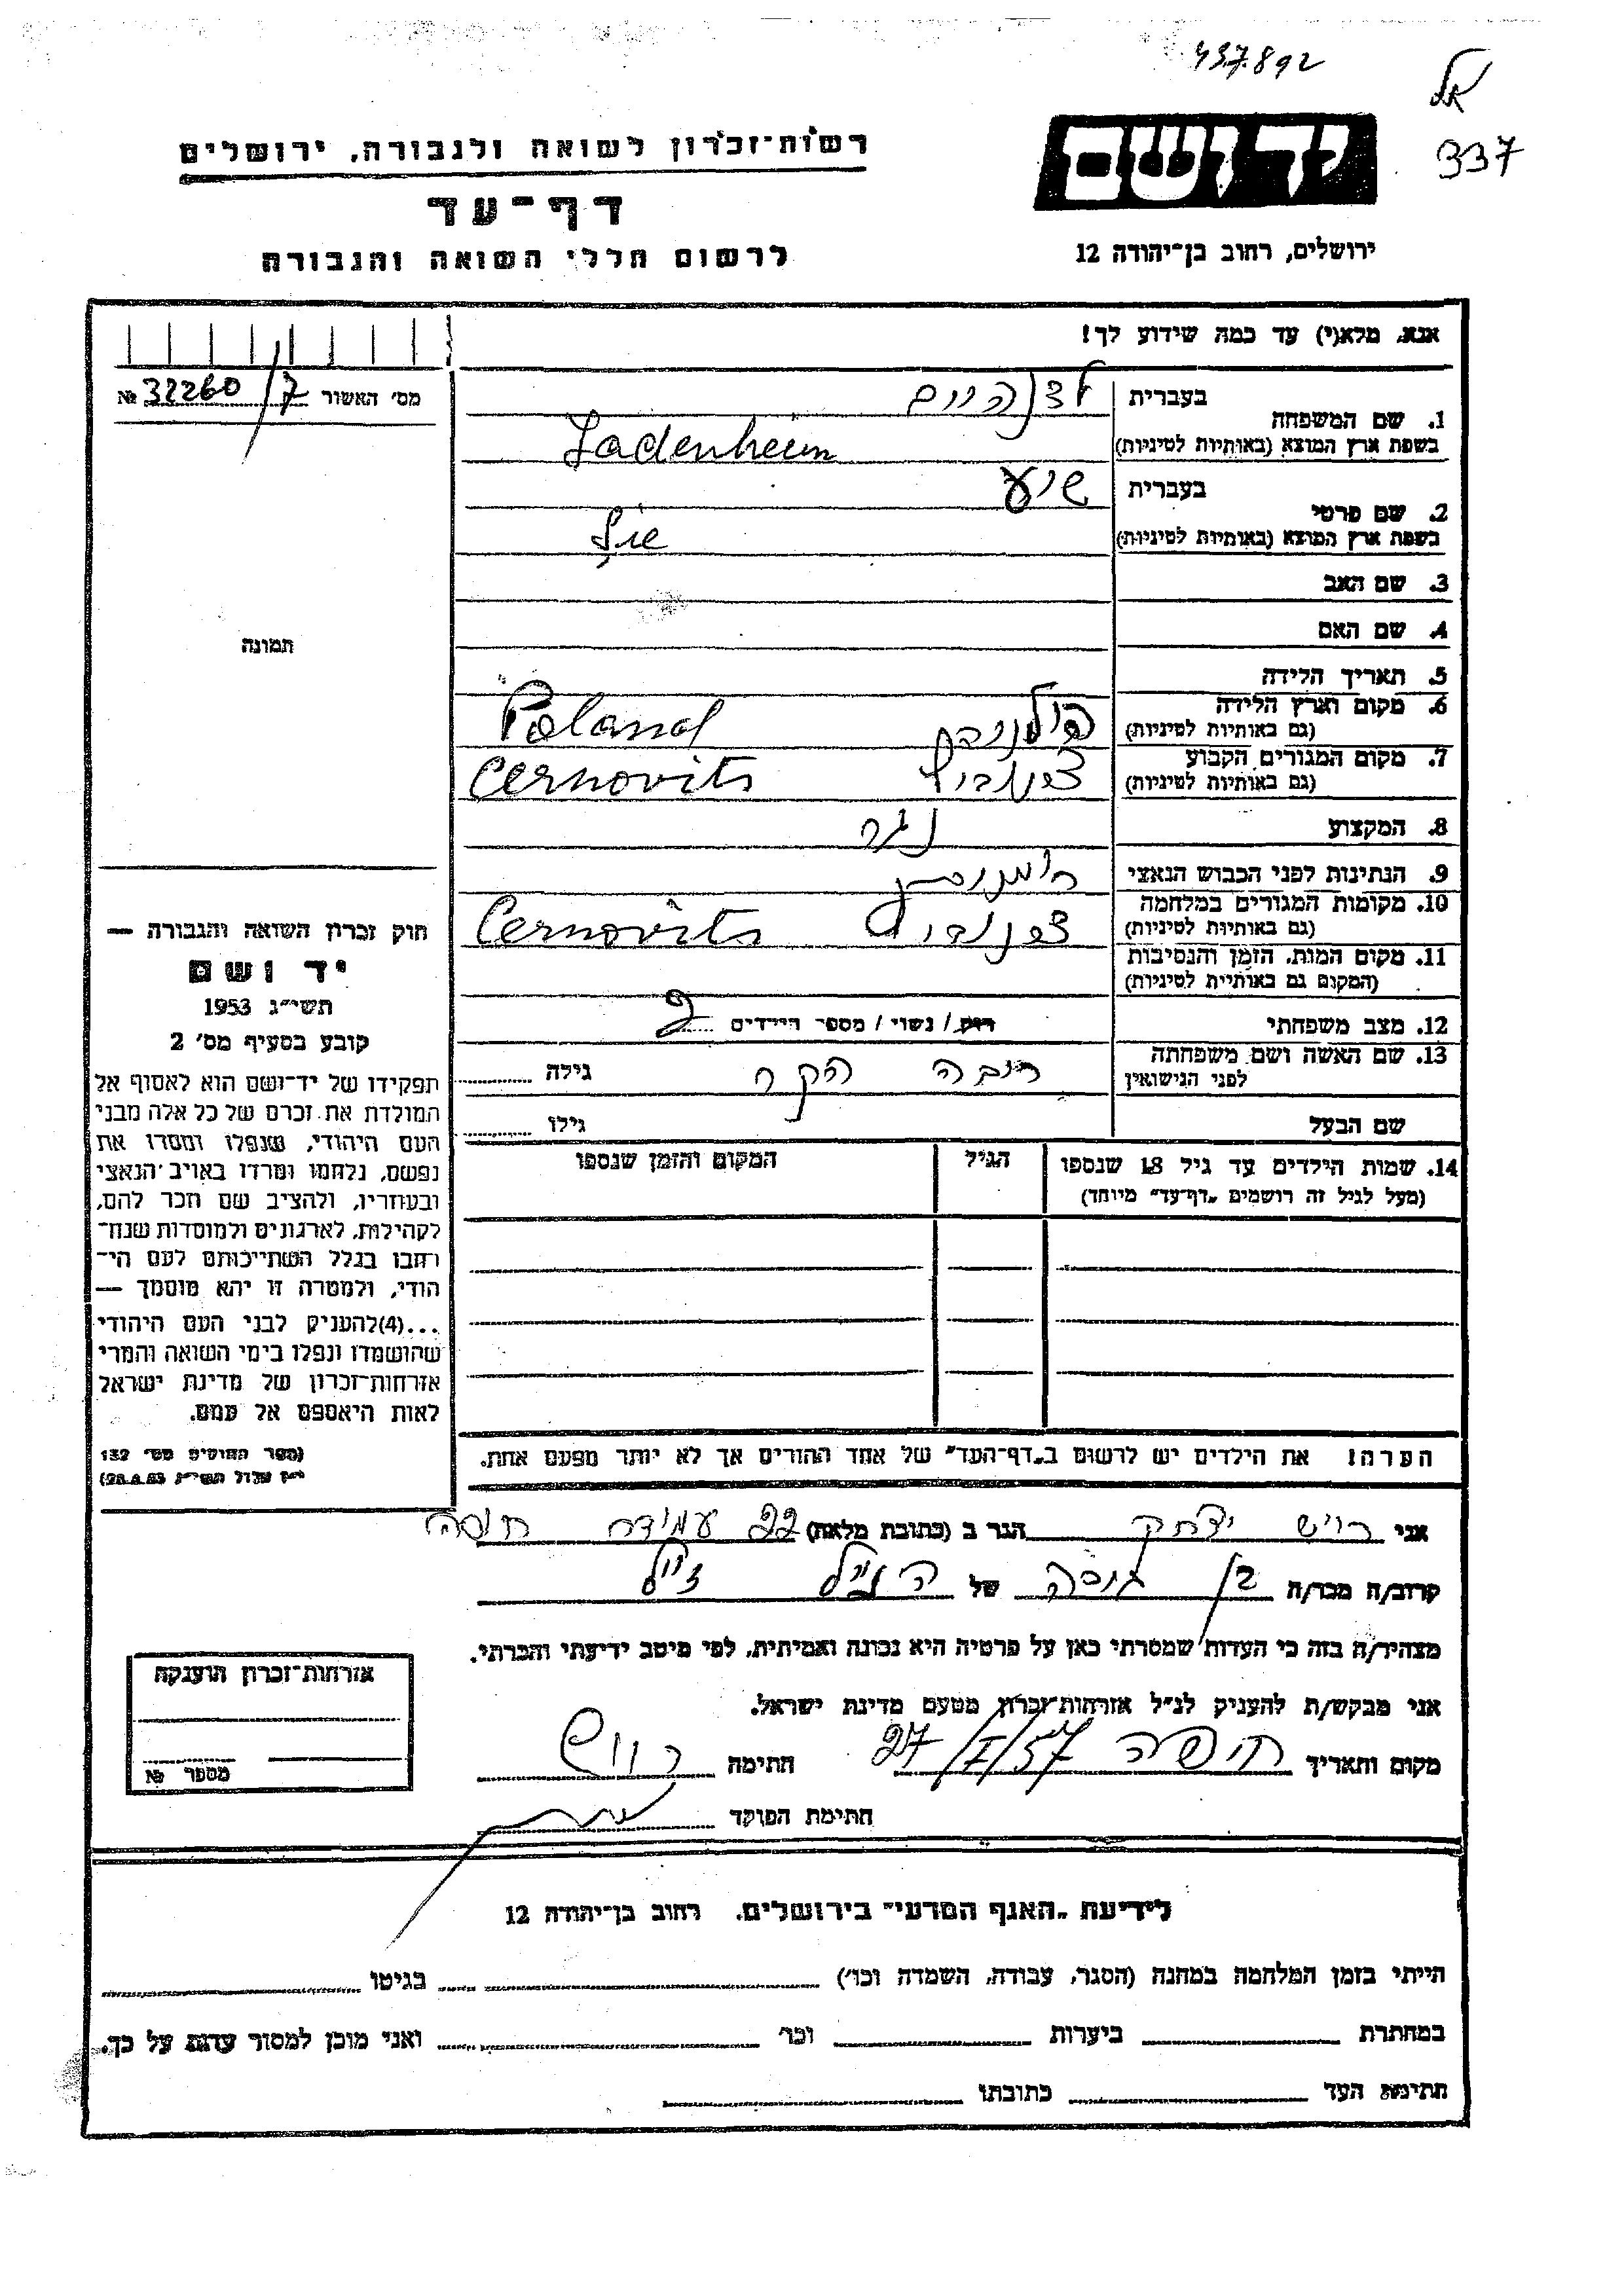 437.892
337
יד ושם
ירושלים, רחוב בן־יהודה 12
רשות־זכרון לשואה ולגבורה, ירושלים
דף־עד
לרשום חללי השואה והגבורה
אנא, מלא(י) עד כמה שידוע לך!
מס׳ האשור 32260/7 №
תמונה
1. שם המשפחה
בעברית לדנהיים
בשפת ארץ המוצא (באותיות לטיניות) Ladenheim
2. שם פרטי
בעברית שיע
בשפת ארץ המוצא (באותיות לטיניות)
3. שם האב
4. שם האם
5. תאריך הלידה
6. מקום וארץ הלידה
(גם באותיות לטיניות) Poland
7. מקום המגורים הקבוע
(גם באותיות לטיניות) Cernovits
8. המקצוע נגר
9. הנתינות לפני הכבוש הנאצי
10. מקומות המגורים במלחמה
(גם באותיות לטיניות) Cernovits
11. מקום המות, הזמן והנסיבות
(המקום גם באותיית לטיניות)
12. מצב משפחתי רוק / נשוי / מספר הילדים
13. שם האשה ושם משפחתה
לפני הנישואין גילה
שם הבעל גילו
14. שמות הילדים עד גיל 18 שנספו הגיל המקום והזמן שנספו
(מעל לגיל זה רושמים „דף־עד״ מיוחד)
הערה: את הילדים יש לרשום ב„דף־העד״ של אחד ההורים אך לא יותר מפעם אחת.
חוק זכרון השואה והגבורה —
יד ושם
תשי״ג 1953
קובע בסעיף מס׳ 2
תפקידו של יד־ושם הוא לאסוף אל
המולדת את זכרם של כל אלה מבני
העם היהודי, שנפלו ומסרו את
נפשם, נלחמו ומרדו באויב הנאצי
ובעוזריו, ולהציב שם וזכר להם,
לקהילות, לארגונים ולמוסדות שנח־
רבו בגלל השתייכותם לעם הי־
הודי, ולמטרה זו יהא מוסמך —
...(4)להעניק לבני העם היהודי
שהושמדו ונפלו בימי השואה והמרי
אזרחות־זכרון של מדינת ישראל
לאות היאספם אל עמם.
(ספר החוקים מס׳ 132
י״ז אלול תשי״ג 28.8.53)
אני יצחק הגר ב (כתובת מלאה) חיפה
קרוב/ה מכר/ה בן של הנ״ל ז״ל
מצהיר/ה בזה כי העדות שמסרתי כאן על פרטיה היא נכונה ואמיתית, לפי מיטב ידיעתי והכרתי.
אני מבקש/ת להעניק לנ״ל אזרחות־זכרון מטעם מדינת ישראל.
מקום ותאריך חיפה 27/I/57 חתימה
חתימת הפוקד
אזרחות־זכרון הוענקה
מספר №
לידיעת „האגף המדעי״ בירושלים, רחוב בן־יהודה 12
הייתי בזמן המלחמה במחנה (הסגר, עבודה, השמדה וכו׳) בגיטו
במחתרת ביערות וכו׳ ואני מוכן למסור עדות על כך.
חתימת העד כתובתו